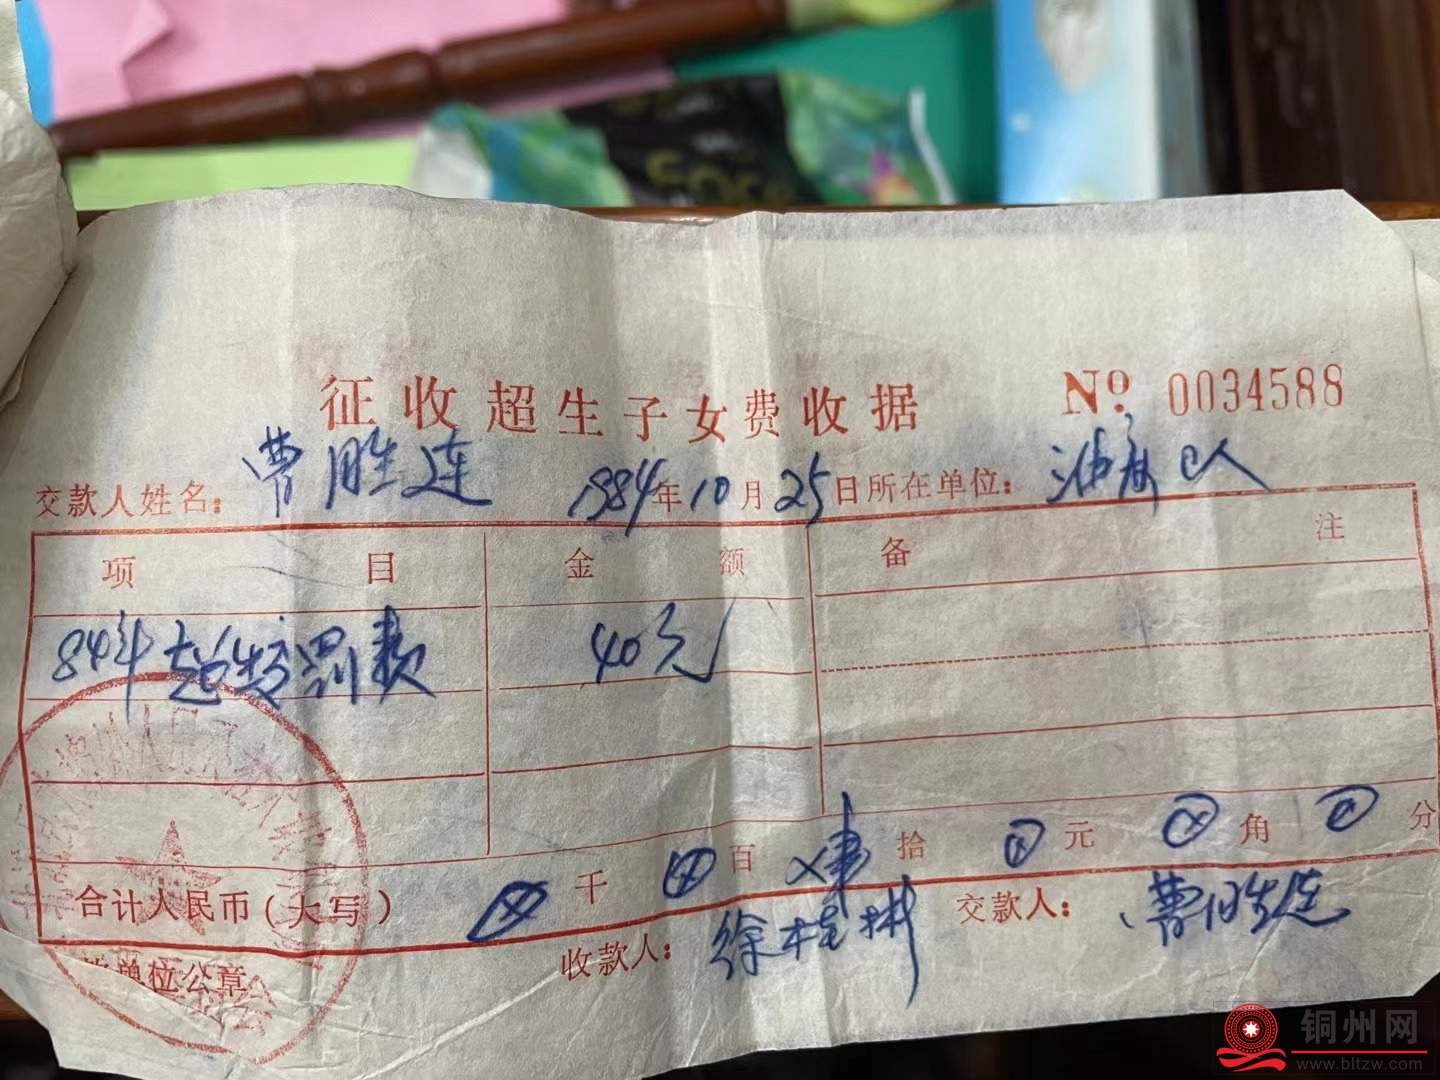 征收超生子女费收据 No. 0034588
交款人姓名：曹胜连 1984年10月25日所在单位：
项目 金额 备注
84年超生罚款 40元
合计人民币（大写） ⊗千 ⊗百 ×肆拾 ⊗元 ⊗角 ⊗分
单位公章 收款人：徐桂彬 交款人：曹胜连
铜州网
www.bltzw.com